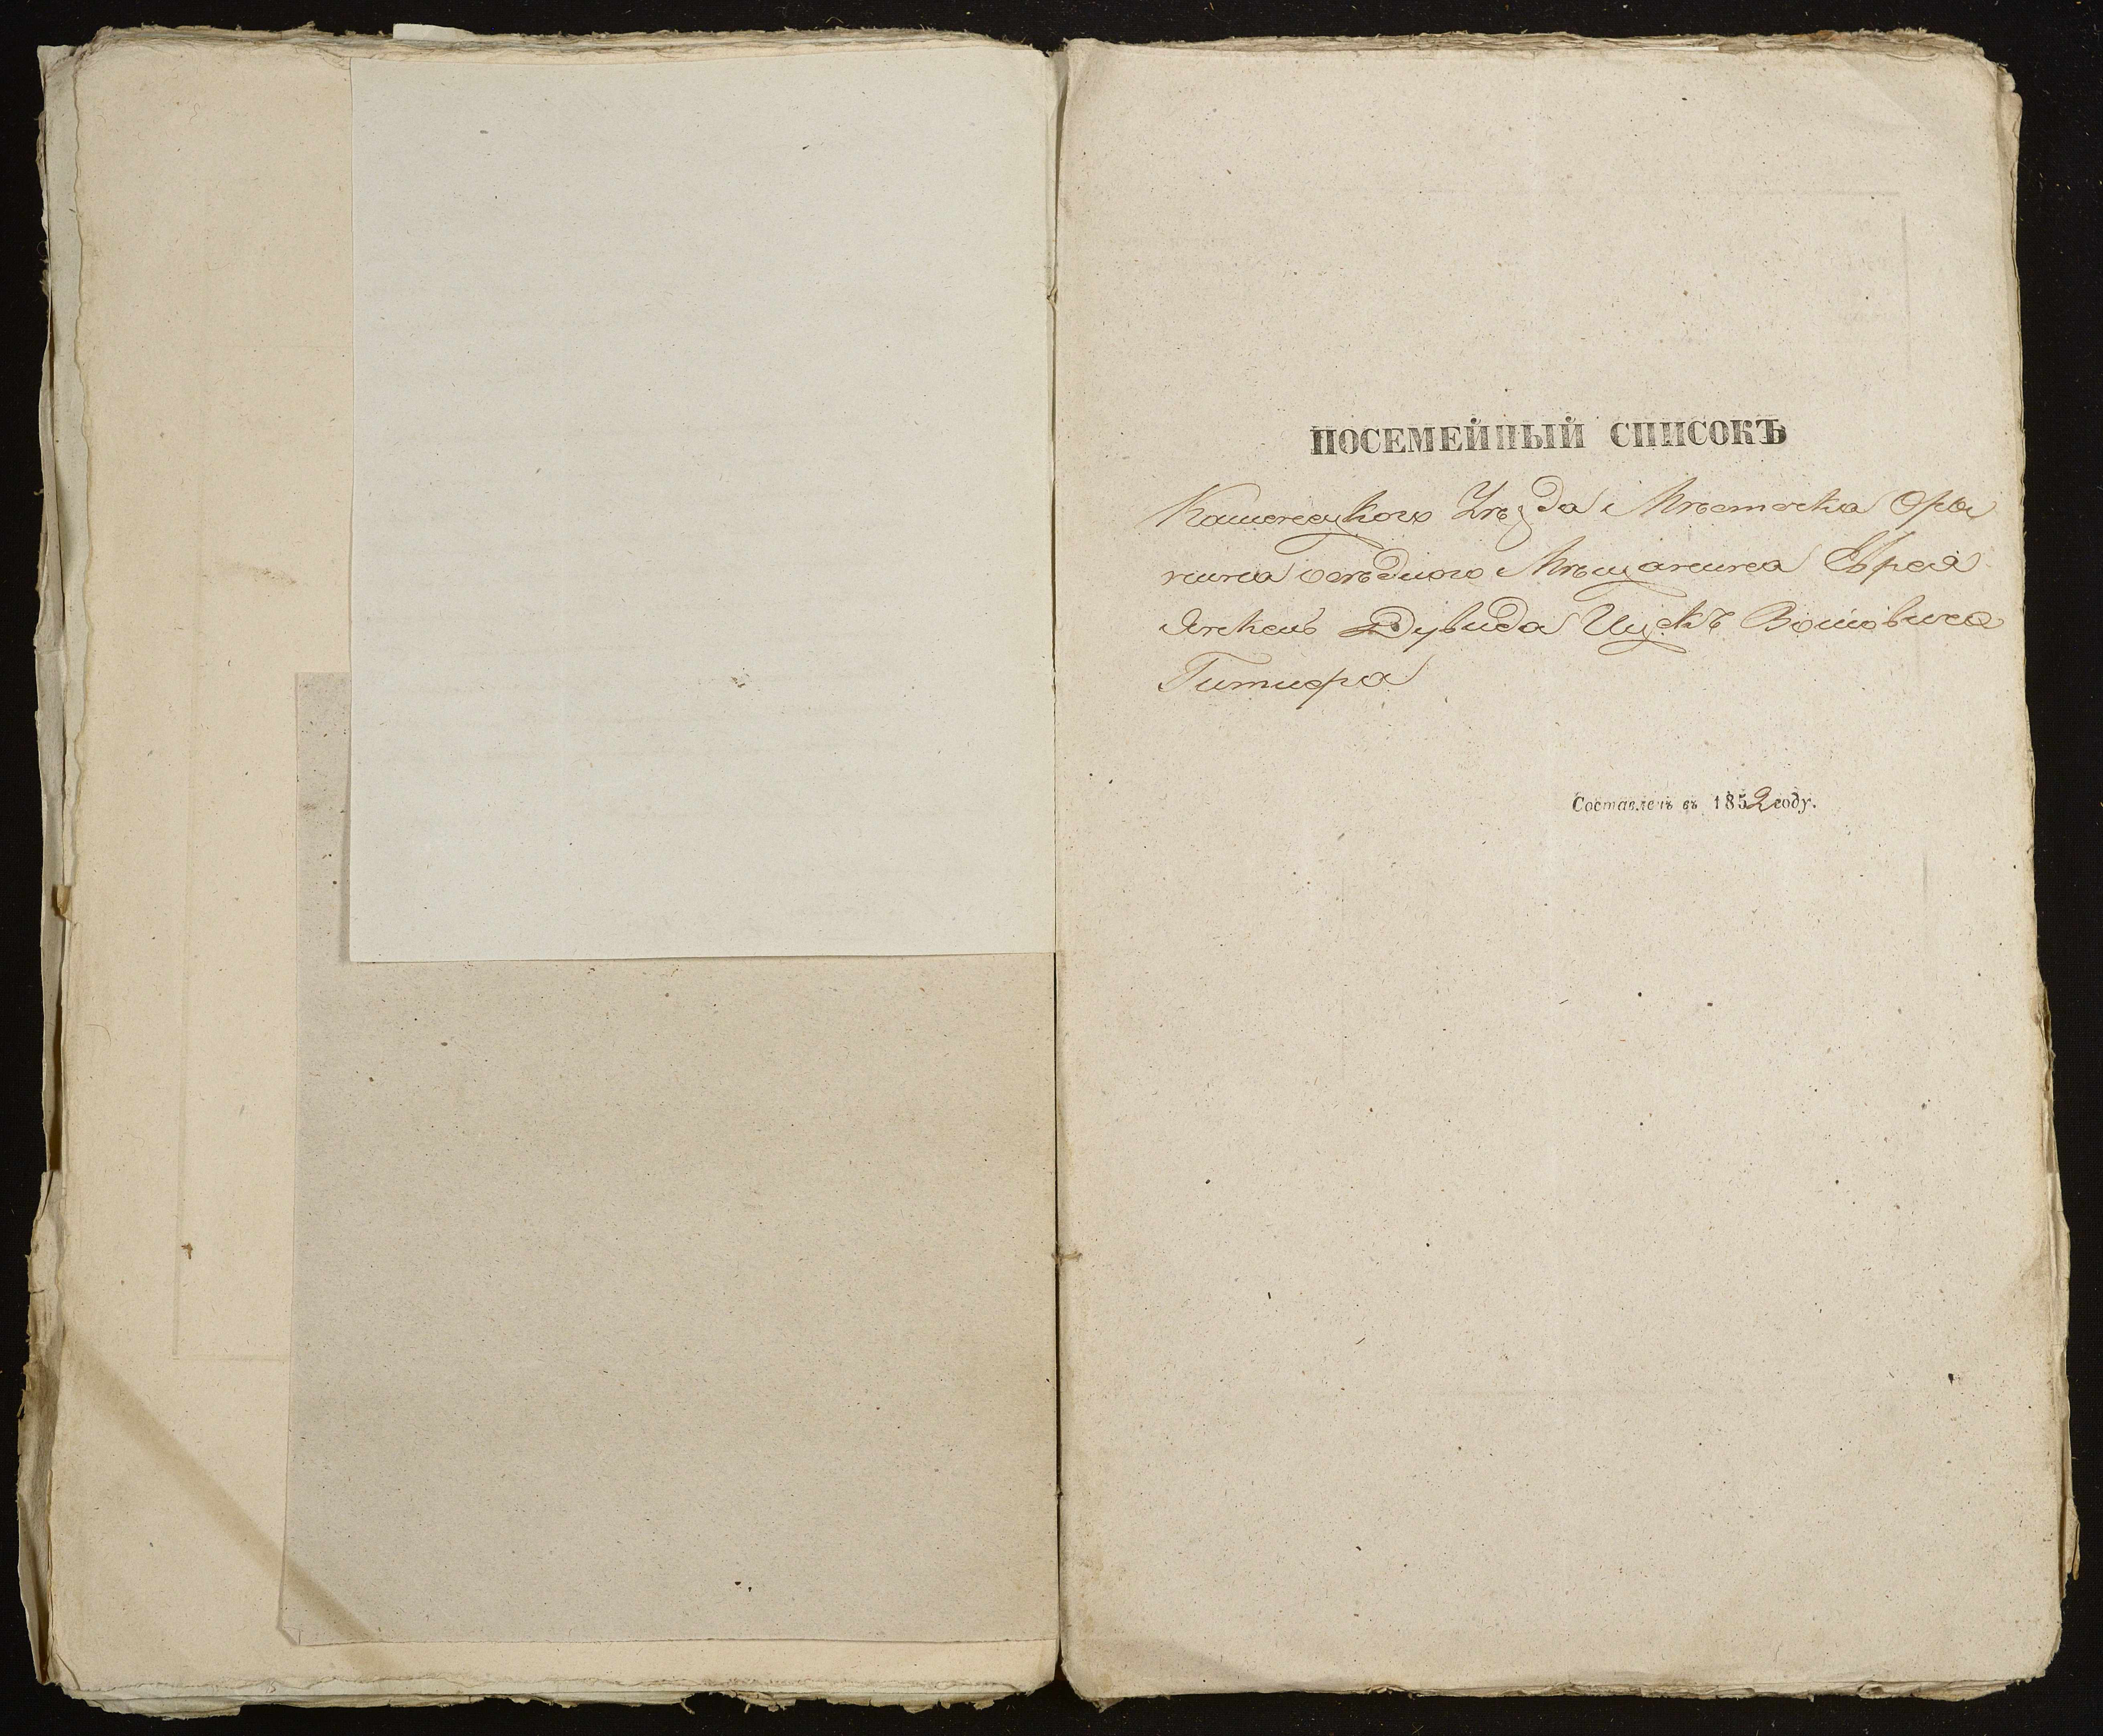 ПОСЕМЕЙНЫЙ СПИСОКЪ
Каменецкого Уѣзда Мѣстечка Ори
нина осѣдлого Мѣщанина Еврея
Янкель Дувида Ицекъ Волѡвича
Гитлера
Составленъ въ 1852 году.